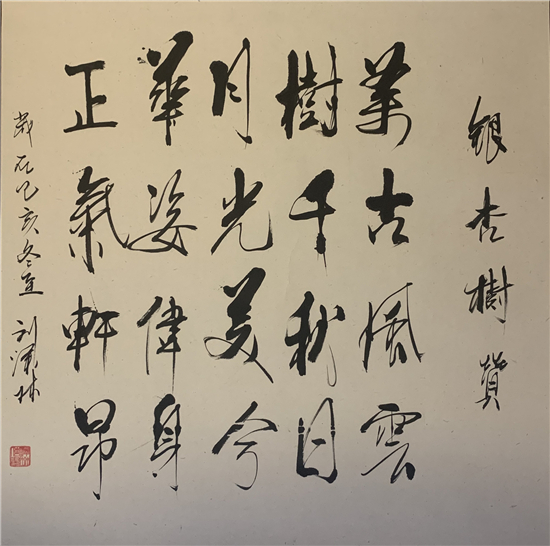 銀杏樹贊
萬古風雲
樹千秋日
月光美今
華姿偉身
正氣軒昂
歲在己亥冬 刘漢林